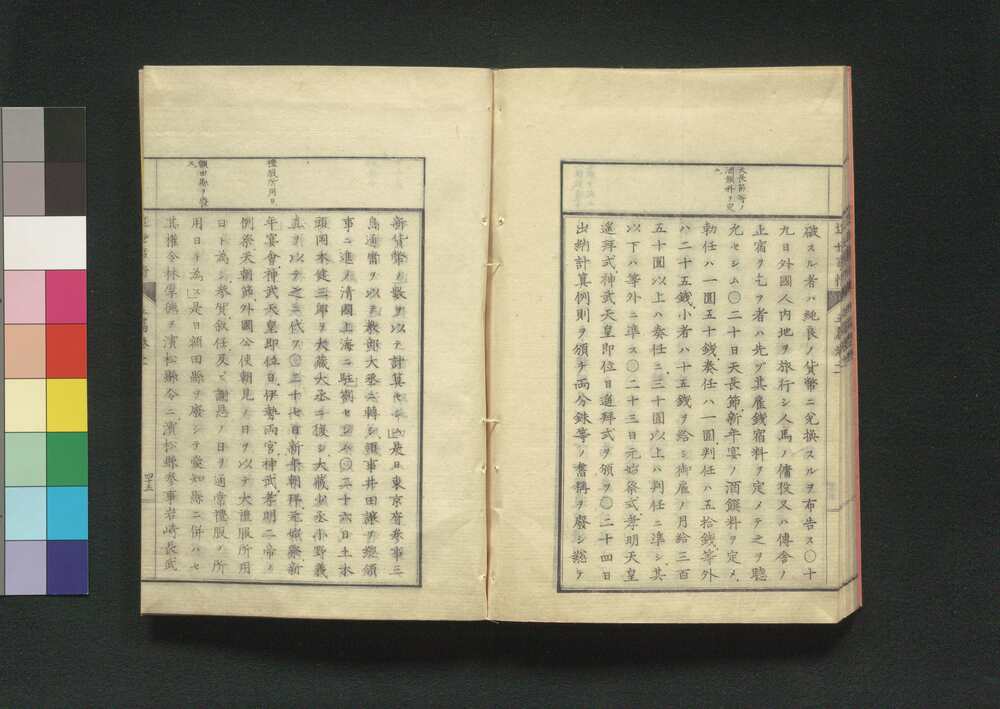 天長節等ノ
酒饌料ヲ定
ム
破スル者ハ純良ノ貨幣ニ兌換スルヲ布告ス〇十
九日外國人内地ヲ旅行シ人馬ノ傭役又ハ傳舎ノ
止宿ヲ乞フ者ハ先ヅ其雇錢宿料ヲ定メテ之ヲ聽
允セシム〇二十日天長節新年宴ノ酒饌料ヲ定メ
勅任ハ一圓五十錢奏任ハ一圓判任ハ五拾錢等外
ハ二十五錢小者ハ十五錢ヲ給シ御雇ノ月給三百
五十圓以上ハ奏任ニ三十圓以上ハ判任ニ準シ其
以下ハ等外ニ準ス〇二十三日元始祭式孝明天皇
遙拜式神武天皇即位日遙拜式ヲ頒ツ〇二十四日
出納計算例則ヲ頒チ両分銖等ノ舊稱ヲ廢シ總テ
禮服所用日
額田縣ヲ廢
ス
新貨幣ノ數ヲ以テ計算セシム是日東京府參事三
島通庸ヲ以テ教部大丞ニ轉シ領事井田讓ヲ總領
事ニ進メ清國上海ニ駐劄セシム〇二十六日土木
頭岡本健三郎ヲ大藏大丞ニ復シ大藏少丞小野義
眞ヲ以テ之ニ代フ〇二十七日新年朝拜元始祭新
年宴會神武天皇即位日伊勢両宮神武孝明二帝ノ
例祭天朝節外國公使朝見ノ日ヲ以テ大禮服所用
日ト為シ參賀叙任及ビ謝恩ノ日ヲ通常禮服ノ所
用日ト為ス是日額田縣ヲ廢シテ愛知縣ニ併ハセ
其權令林厚徳ヲ濱松縣令ニ濱松縣參事岩崎長武
四十五